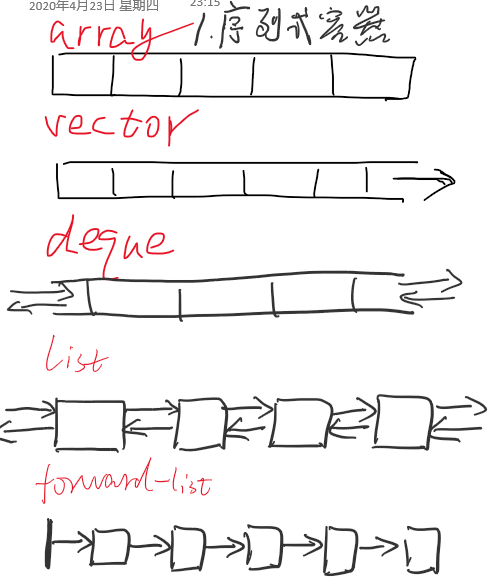 2020年4月23日 星期四 23:15
array 1.序列式容器
vector
deque
list
forward-list